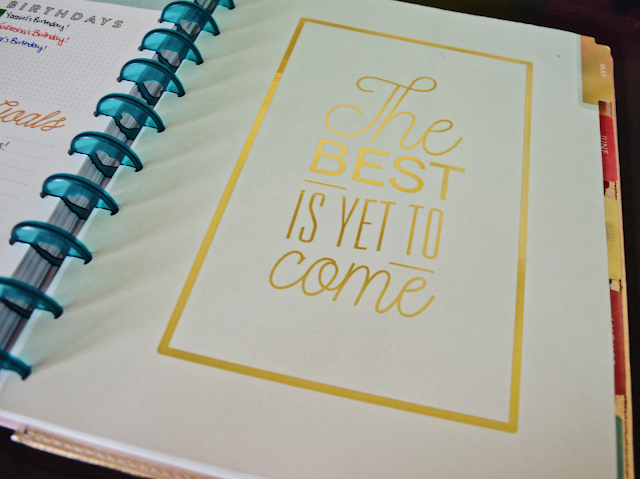 BIRTHDAYS
Birthday!
Birthday!
Birthday!
Goals
The
BEST
IS YET TO
come
MAY
JUNE